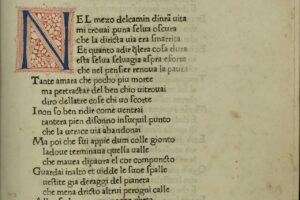 NEL mezo delcamin dinrã uita
mi trouai puna selua oscura
che la diricta uia era smarrita
Et quanto adir q̃lera cosa dura
esta selua seluagia aspra eforte
che nel pensier renoua la paura
Tante amara che pocho piu morte
ma pertractar del ben chio uitrouai
diro dellatre cose chi uo scorte
I non so ben ridir come uentrai
tantera pien disonno insuquil puncto
che la uerace uia abandonai
Ma poi che fui appie dum colle gionto
ladoue terminaua quella ualle
che mauea dipaura el cor compuncto
Guardai inalto et uidde le sue spalle
uestite gia deraggi del pianeta
che mena dricto altrui perogni calle